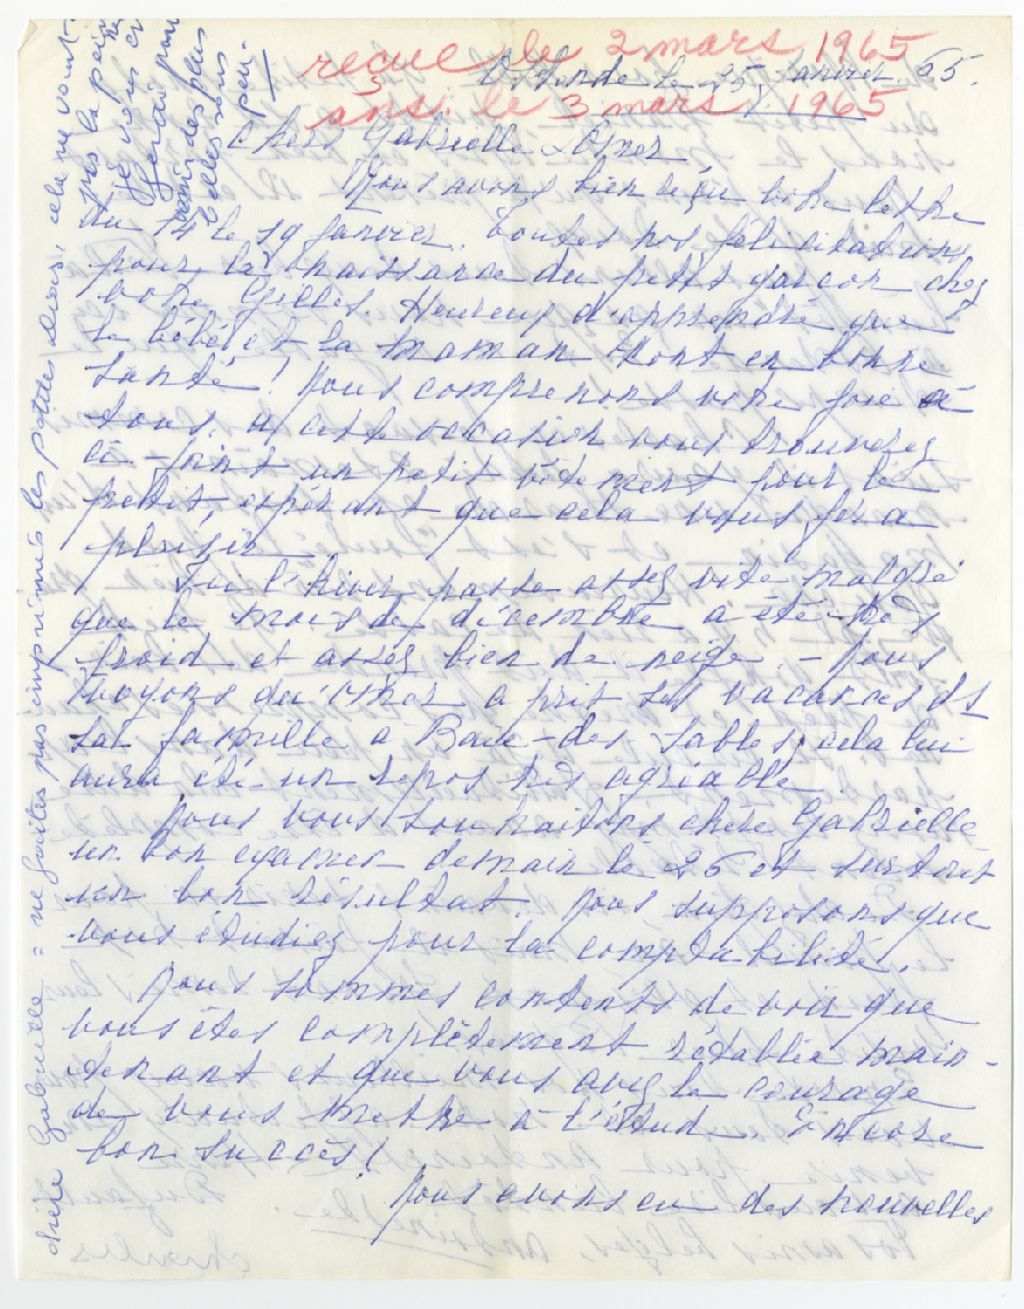 reçue le 2 mars 1965
Ostende le 25 janvier 65.
ans. le 3 mars 1965
Chers Gabrielle & Omer,
Nous avons bien reçu votre lettre
du 14 le 19 janvier. Toutes nos félicitations
pour la naissance du petit garçon chez
votre Gilles. Heureux d'apprendre que
le bébé et la maman sont en bonne
santé! Nous comprenons votre joie à
tous. A cette occasion vous trouverez
ci-joint un petit vêtement pour le
petit, espérant que cela vous fera
plaisir.
Ici l'hiver passe assez vite malgré
que le mois de décembre a été très
froid et assez bien de neige. - Nous
voyons qu'Omer a prit ses vacances ds
sa famille à Baie-des-Sables, cela lui
aura été un repos très agréable.
Nous vous souhaitons chère Gabrielle
un bon examen demain le 26 et surtout
un bon résultat. Nous supposons que
vous étudiez pour la comptabilité.
Nous sommes contents de voir que
vous êtes complètement rétablie main-
tenant et que vous avez le courage
de vous mettre à l'étude. Encore
bon succès!
Nous avons eu des nouvelles
chère Gabrielle = ne faites pas imprimés les pattes cela ne vaut
pas la peine
je vous en
ferais pour
des plus
belles sous
peu.